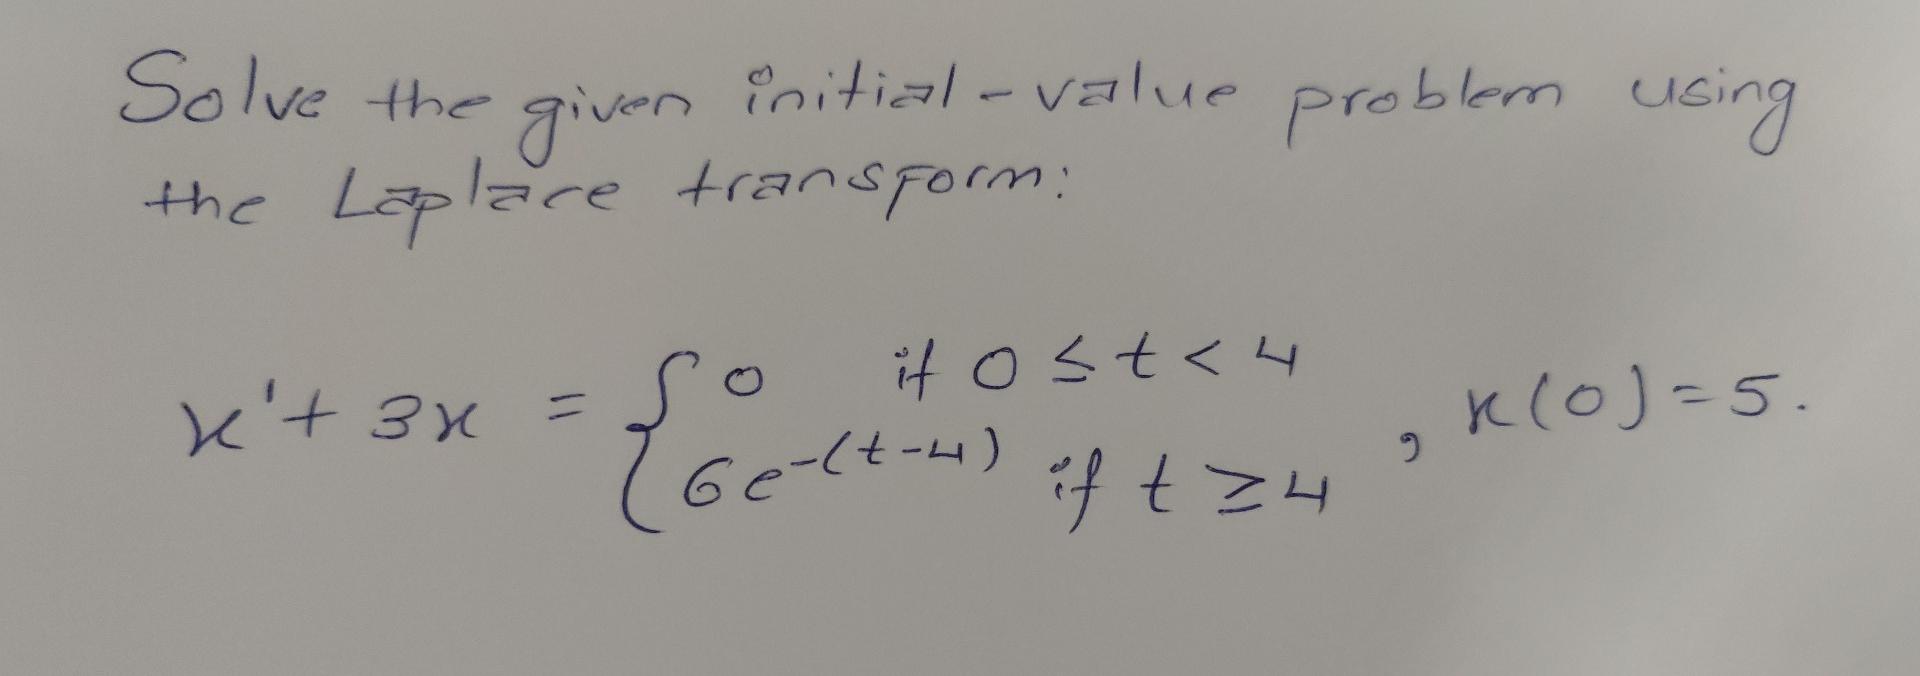 Solve the given initial-value problem using
the Laplace transform:
x'+ 3x = { 0 if 0 ≤ t < 4
6e^{-(t-4)} if t ≥ 4 , x(0)=5.